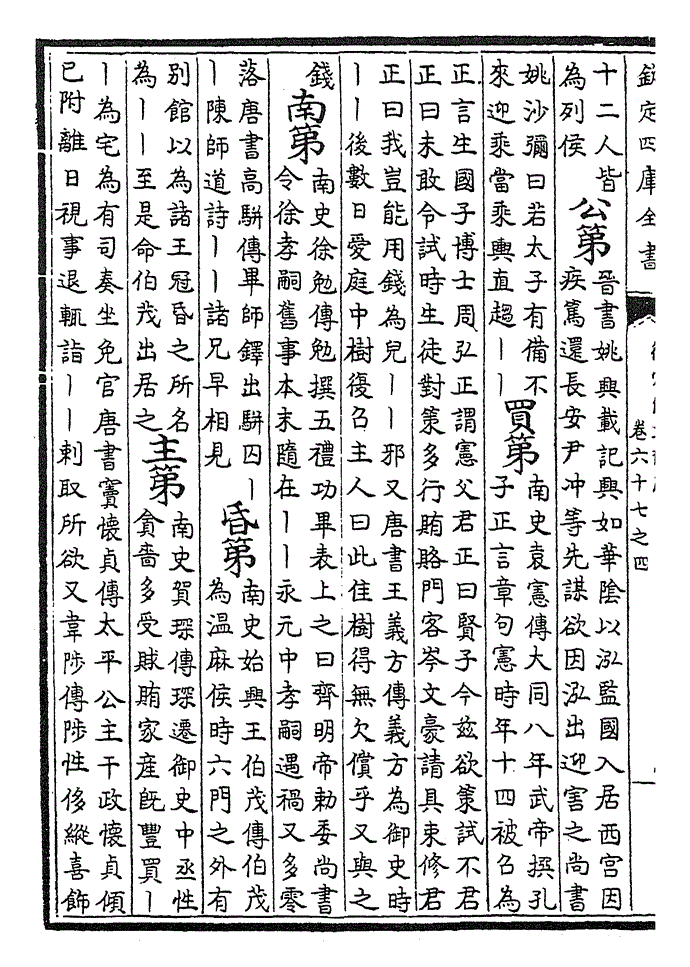 欽定四庫全書
卷六十七之四
十二人皆
為列侯
公第
晉書姚興載記興如華陰以泓監國入居西宮因
疾篤還長安尹冲等先謀欲因泓出迎害之尚書
姚沙彌曰若太子有備不
來迎乘當乘輿直趨丨丨
買第
南史袁憲傳大同八年武帝撰孔
子正言章句憲時年十四被召為
正言生國子博士周弘正謂憲父君正曰賢子今兹欲策試不君
正曰未敢令試時生徒對策多行賄賂門客岑文豪請具束修君
正曰我豈能用錢為兒丨丨邪又唐書王義方傳義方為御史時
丨丨後數日愛庭中樹復召主人曰此佳樹得無欠償乎又與之
錢
南第
南史徐勉傳勉撰五禮功畢表上之曰齊明帝勅委尚書
令徐孝嗣舊事本末隨在丨丨永元中孝嗣遇禍又多零
落唐書高駢傳畢師鐸出駢囚丨
丨陳師道詩丨丨諸兄早相見
昏第
南史始興王伯茂傳伯茂
為温麻侯時六門之外有
別館以為諸王冠昏之所名
為丨丨至是命伯茂出居之
主第
南史賀琛傳琛遷御史中丞性
貪嗇多受賕賄家産既豐買丨
丨為宅為有司奏坐免官唐書竇懷貞傳太平公主干政懷貞傾
已附離日視事退輒詣丨丨刺取所欲又韋陟傳陟性侈縱喜飾